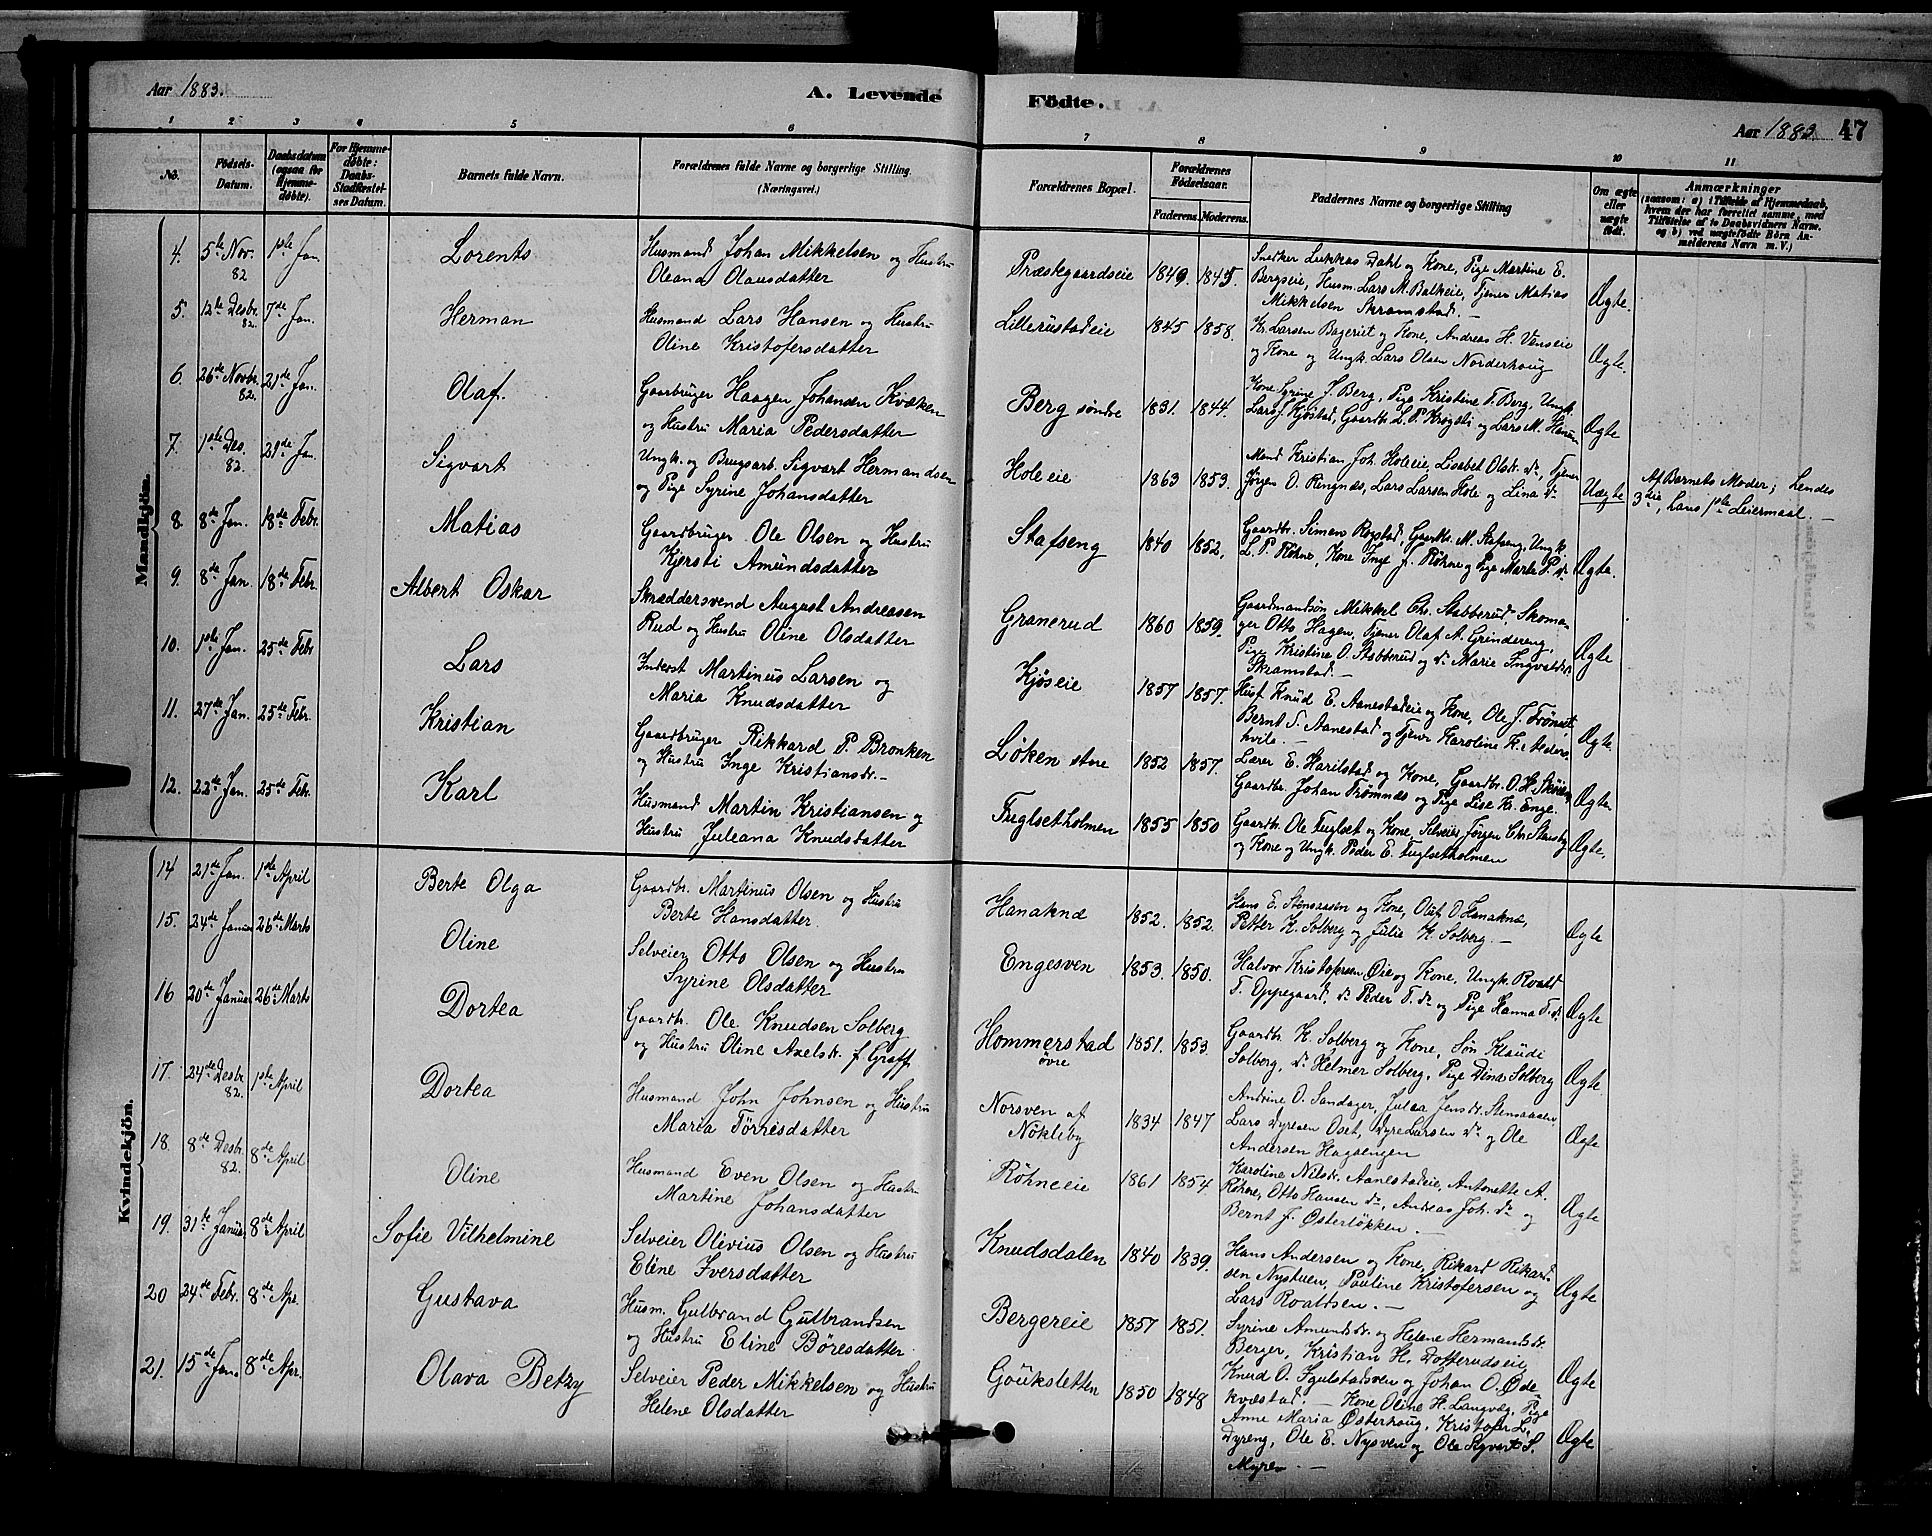 Aar 1883.
A. Levende
Födte.
Aar 1883
47
1 2 3 4 5 6 7 8 9 10 11
No.
Födsels-
Datum.
Daabsdatum
(ogsaa for
Hjemme-
døbte).
For Hjemme-
døbte:
Daabs-
Stadfæstel-
ses Datum.
Barnets fulde Navn.
Forældrenes fulde Navne og borgerlige Stilling.
(Næringsvei.)
Forældrenes Bopæl.
Forældrenes
Födselsaar.
Faderens. Moderens.
Faddernes Navne og borgerlige Stilling
Om ægte
eller
uægte
født.
Anmærkninger
(saasom: a) i Tilfælde af Hjemmedaab,
hvem der har forrettet samme, med
Tilføielse af to Daabsvidners Navne.
og b) ved uægtefødte Börn An-
melderens Navn m. V.)
Mandkjön.
4. 5te Nov. 82 1ste Jan. Lorents
Husmand Johan Mikkelsen og Hustru
Oleana Olausdatter
Præstegaardseie 1849. 1845.
Snedker Lukkas Dahl og Kone, Pige Martine E.
Bergseie, Husm. Lars M. Balkeie, Tjener Matias
Mikkelsen Skramstad. —
Ægte.
5. 12te Desbr. 82. 7de Jan. Herman
Husmand Lars Hansen og Hustru
Oline Kristofersdatter
Lillerustadeie 1845 1858.
K. Larsen Bageriet og Kone, Andreas H. Venseie
og Kone og Ungk. Lars Olsen Norderhoug
Ægte.
6. 26de Novbr. 82. 21de Jan. Olaf.
Gaardbruger Haagen Johansen Kvæken
og Hustru Maria Pedersdatter
Berg søndre 1831. 1844.
Kone Syrine J. Berg, Pige Kristine T. Berg, Ungk.
Lars J. Kjøstad, Gaardb. L. P. Krogsti og Lars M. Hanun
Ægte
7. 1ste Des. 82. 21de Jan. Sigvart
Ungk. og Brugsarb. Sigvart Hermandsen
og Pige Syrine Johansdatter
Holeeie 1863 1853.
Mand Kristian Joh. Holeeie, Lisabet Olsdr. do, Tjener
Jørgen O. Ringnæs, Lars Larsen Hole og Lina do
Uægte
Af Barnets Moder; hendes
3die, hans 1ste Leiermaal. —
8. 8de Jan. 18de Febr. Matias
Gaardbruger Ole Olsen og Hustru
Kjersti Amundsdatter
Stafseng 1840 1852,
Gaardbr. Simens Rogstad, Gaardbr. M. Stafseng, Ungk.
L. P. Røhne, Kone Inge J. Røhne og Pige Marte P. do
Ægte.
9. 8de Jan. 18de Febr. Albert Oskar
Skræddersvend August Andreasen
Rud og Hustru Oline Olsdatter
Granerud 1860 1859.
Gaardmandsøn Mikkel Chr. Stabberud, Skoma-
ger Otto Hagen, Tjener Olaf A. Grindereng,
Pige Kristine O. Stabberud og do Marie Ingvaldsdr.
Skramstad. —
Ægte
10. 1ste Jan. 25de Febr. Lars
Inderst Martinus Larsen og
Maria Knudsdatter
Kjøseie 1857 1857.
Hust. Knud E. Aanestadeie og Kone, Ole J. Trønset
Bernt T. Aanestad og Tjener Karoline K. Sveders
hvile. —
Ægte
11. 27de Jan. 25de Febr. Kristian
Gaardbruger Rikkard P. Bronken
og Hustru Inge Kristiansdr. —
Løken store 1852 1857.
Lærer E. Harilstad og Kone, Gaardbr. O. H. Skøien,
Gaardbr. Johan Trømnæs og Pige Lise K. Enge.
Ægte
12. 22de Jan. 25de Febr. Karl
Husmand Martin Kristiansen og
Hustru Juleana Knudsdatter
Fuglsetholmen 1855 1850
Gaardbr. Ole Fuglset og Kone, Selveier Jørgen Chr. Stensby
og Kone og Ungk. Peder E. Fuglsetholmen
Ægte.
Kvindekjön.
14 21de Jan. 1ste April Berte Olga
Gaardbr. Martinus Olsen og Hustru
Berte Hansdatter.
Hanaknæ 1852. 1852.
Hans E. Stensaasen og Kone, Oluf O Hanaknæ,
Petter K. Solberg og Julie K. Solberg. —
Ægte
15. 24de Januar 26de Marts Oline
Selveier Otto Olsen og Hustru
Syrine Olsdatter
Engesven 1853. 1850.
Halvor Kristofersen Øie og Kone, Ungk. Roald
T. Oppegaard, do Peder T. do og Pige Hanna T. do
Ægte
16 20de Januar 26de Marts Dortea
Gaardbr. Ole Knudsen Solberg
og Hustru Oline Axelsdr. f. Graff
Hommerstad øvre 1851. 1853.
Gaardbr. K. Solberg og Kone, Søn Klaudi
Solberg, do Helmer Solberg, Pige Dina Solberg
Ægte
17. 24de Desbr. 82. 1ste April Dortea
Husmand John Johnsen og Hustru
Maria Tørresdatter
Norsven af Nøkleby 1834 1847
Andrine O. Sandager, Julaa Jensdr. Stensaasen
Lars Dyresen Oset, Dyre Larsen do og Ole
Andersen Hagaengen
Ægte
18. 8de Desbr. 82. 8de April Oline
Husmand Even Olsen og Hustru
Martine Johansdatter
Røhneeie 1861 1854.
Karoline Nilsdr. Aanestadeie, Antonette A.
Røhne, Otto Hansen do, Andreas Joh. do og
Bernt J. Østerløkken. —
Ægte
19. 31te Januar 8de April Sofie Vilhelmine
Selveier Olivius Olsen og Hustru
Eline Iversdatter
Knudsdalen 1840 1839.
Hans Andersen og Kone, Rikard Rikard-
sen Nystuen, Pauline Kristofersen og
Lars Roaldsen. —
Ægte
20 24de Febr. 8de Apr. Gustava
Husm. Gulbrand Gulbrandsen
og Hustru Eline Børesdatter.
Bergereie 1857 1851.
Syrine Amundsdr. og Helene Hermandsdr.
Berger, Kristian H. Dotterudseie
Knud O. Fgulstadsven og Johan O. Øde
kvæstad. —
Ægte
21. 15de Jan. 8de Apr. Olava Betzy
Selveier Peder Mikkelsen og Hustru
Helene Olsdatter
Göuksletten 1850 1848
Kone Oline H. Langvæg, Pige
Anne Maria Østerhoug, Kristofer L.
Dyreng, Ole E. Nysven og Ole Sigvart S.
Myre. —
Ægte